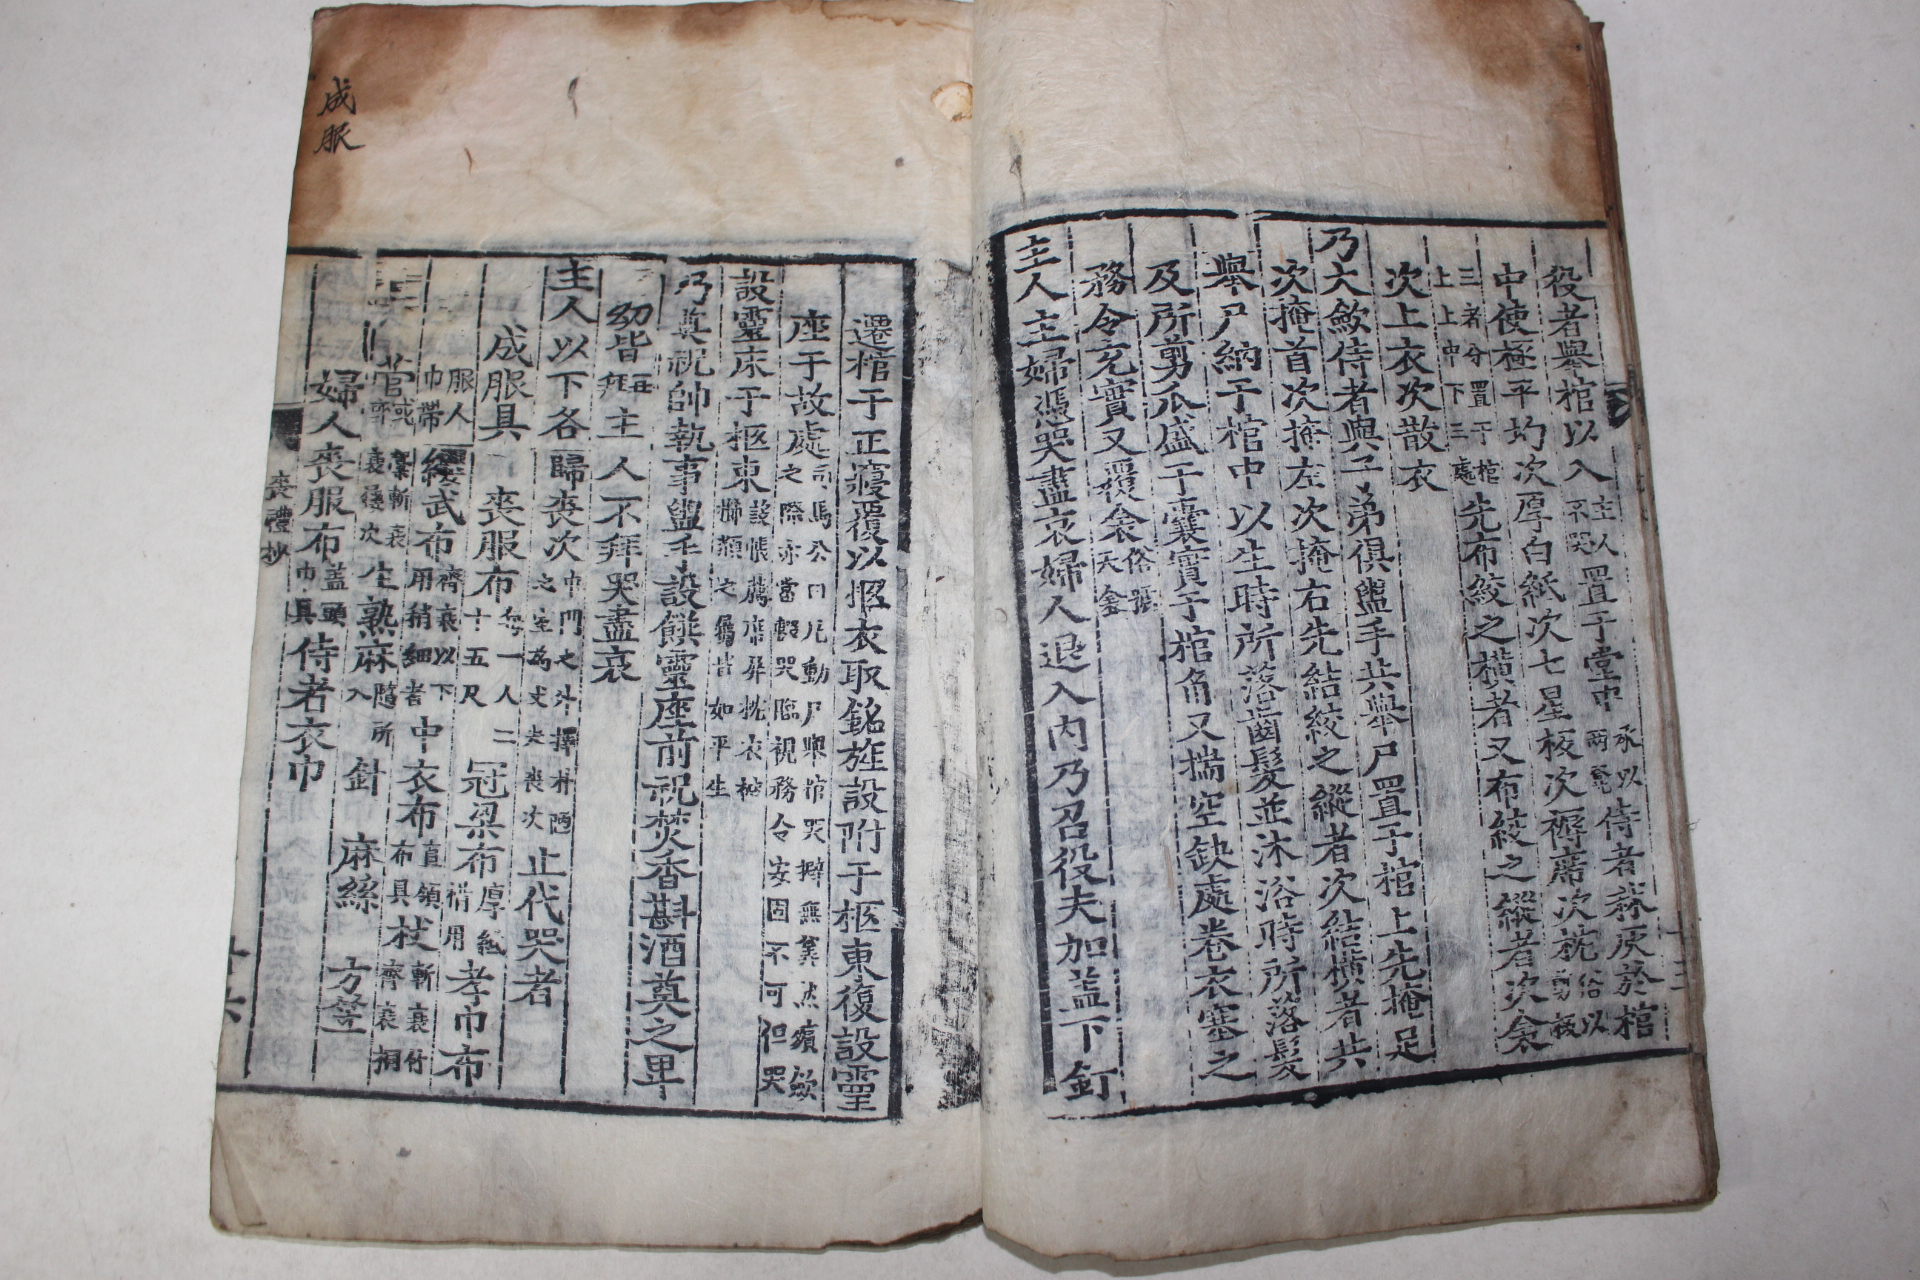 役者舉棺以入主人不哭置于堂中承以兩凳侍者藉灰於棺
中使極平均次厚白紙次七星板次褥席次枕俗以
三者分置于棺上上中下三處先布絞之橫者又布絞之縱者次衾
次上衣次散衣
乃大斂侍者與子弟俱盥手共舉尸置于棺上先掩足
次掩首次掩左次掩右先結絞之縱者次結橫者共
舉尸納于棺中以生時所落齒髮並沐浴時所落髮
及所剪爪盛于囊實于棺角又揣空缺處卷衣塞之
務令充實又覆衾俗稱天衾
主人主婦憑哭盡哀婦人退入內乃召役夫加蓋下釘
遷棺于正寢覆以衣取銘旌設跗于柩東復設靈
座于故處司馬公曰凡動尸舉棺哭擗無筭然殯斂之際亦當輟哭臨視務令安固不可但哭
設靈床于柩東設帳薦席屏枕衣被之屬皆如平生
乃奠祝帥執事盥手設饌靈座前祝焚香斟酒奠之卑
幼皆再拜主人不拜哭盡哀
主人以下各歸喪次中門之外擇朴陋之室為丈夫喪次止代哭者
成服具 喪服布每一人二十五尺冠梁布厚紙用孝巾布
服人巾帶纓武布齊衰以下用稍細者中衣布直領布具杖斬衰竹齊衰桐
菅斬衰次生熟麻隨所入針 麻絲 方笠
婦人喪服布蓋頭巾具侍者衣巾
喪禮抄
十六
成服